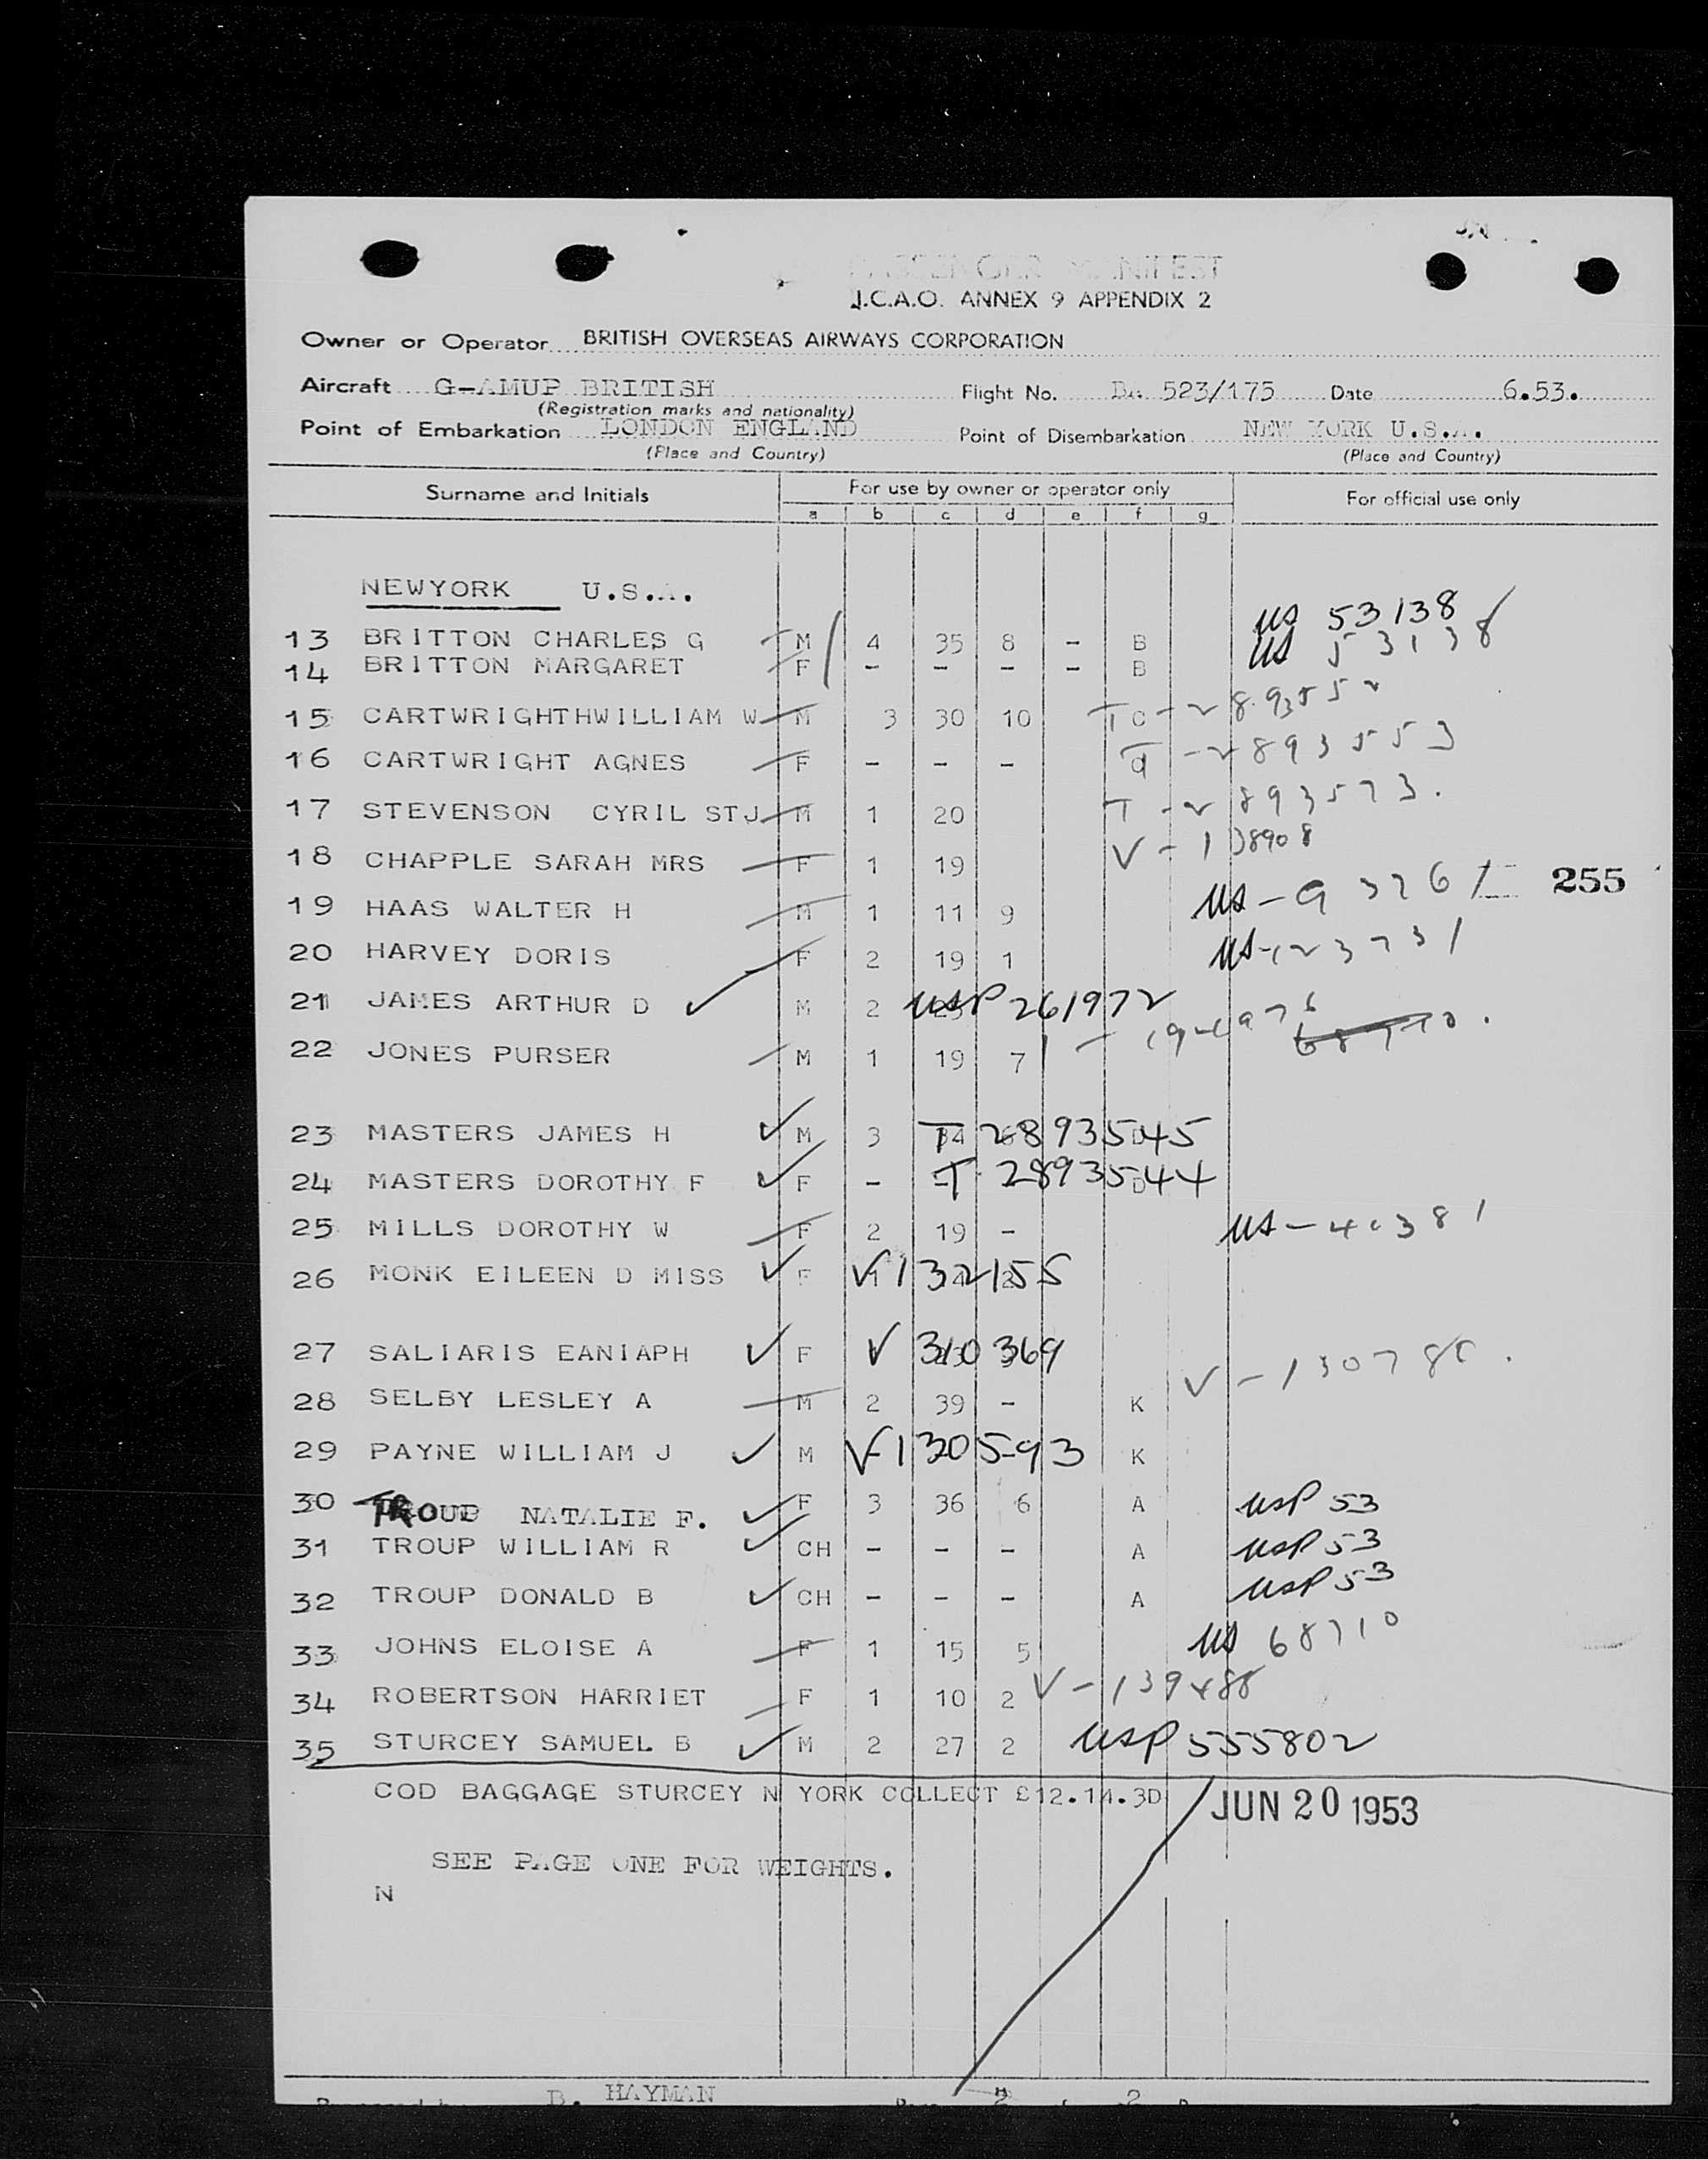 PASSENGER MANIFEST
I.C.A.O. ANNEX 9 APPENDIX 2
Owner or Operator BRITISH OVERSEAS AIRWAYS CORPORATION
Aircraft G-AMUP BRITISH Flight No. BA 523/175 Date 6.53.
(Registration marks and nationality)
Point of Embarkation LONDON ENGLAND Point of Disembarkation NEW YORK U.S.A.
(Place and Country) (Place and Country)
Surname and Initials For use by owner or operator only For official use only
a b c d e f g
NEWYORK U.S.A.
13 BRITTON CHARLES G M 4 35 8 - B US 53138
14 BRITTON MARGARET F - - - - B US 53138
15 CARTWRIGHTHWILLIAM W M 3 30 10 T C - 2893552
16 CARTWRIGHT AGNES F - - - T - 2893553
17 STEVENSON CYRIL STJ M 1 20 T - 2893573.
18 CHAPPLE SARAH MRS F 1 19 V - 138908
19 HAAS WALTER H M 1 11 9 US - 93261 255
20 HARVEY DORIS F 2 19 1 US - 123731
21 JAMES ARTHUR D M 2 USP 261972
22 JONES PURSER M 1 19 7
23 MASTERS JAMES H M 3 34 T 2893545 D
24 MASTERS DOROTHY F F - - T 2893544 D
25 MILLS DOROTHY W F 2 19 - US - 40381
26 MONK EILEEN D MISS F V 132155
27 SALIARIS EANIAPH F V 310369
28 SELBY LESLEY A M 2 39 - K V - 130780.
29 PAYNE WILLIAM J M V-1305-93 K
30 TROUP NATALIE F. F 3 36 6 A USP 53
31 TROUP WILLIAM R CH - - - A USP 53
32 TROUP DONALD B CH - - - A USP 53
33 JOHNS ELOISE A F 1 15 5 US 68710
34 ROBERTSON HARRIET F 1 10 2 V - 139488
35 STURCEY SAMUEL B M 2 27 2 USP 555802
COD BAGGAGE STURCEY N YORK COLLECT £12.14.3D JUN 20 1953
SEE PAGE ONE FOR WEIGHTS.
N
B. HAYMAN 2 2